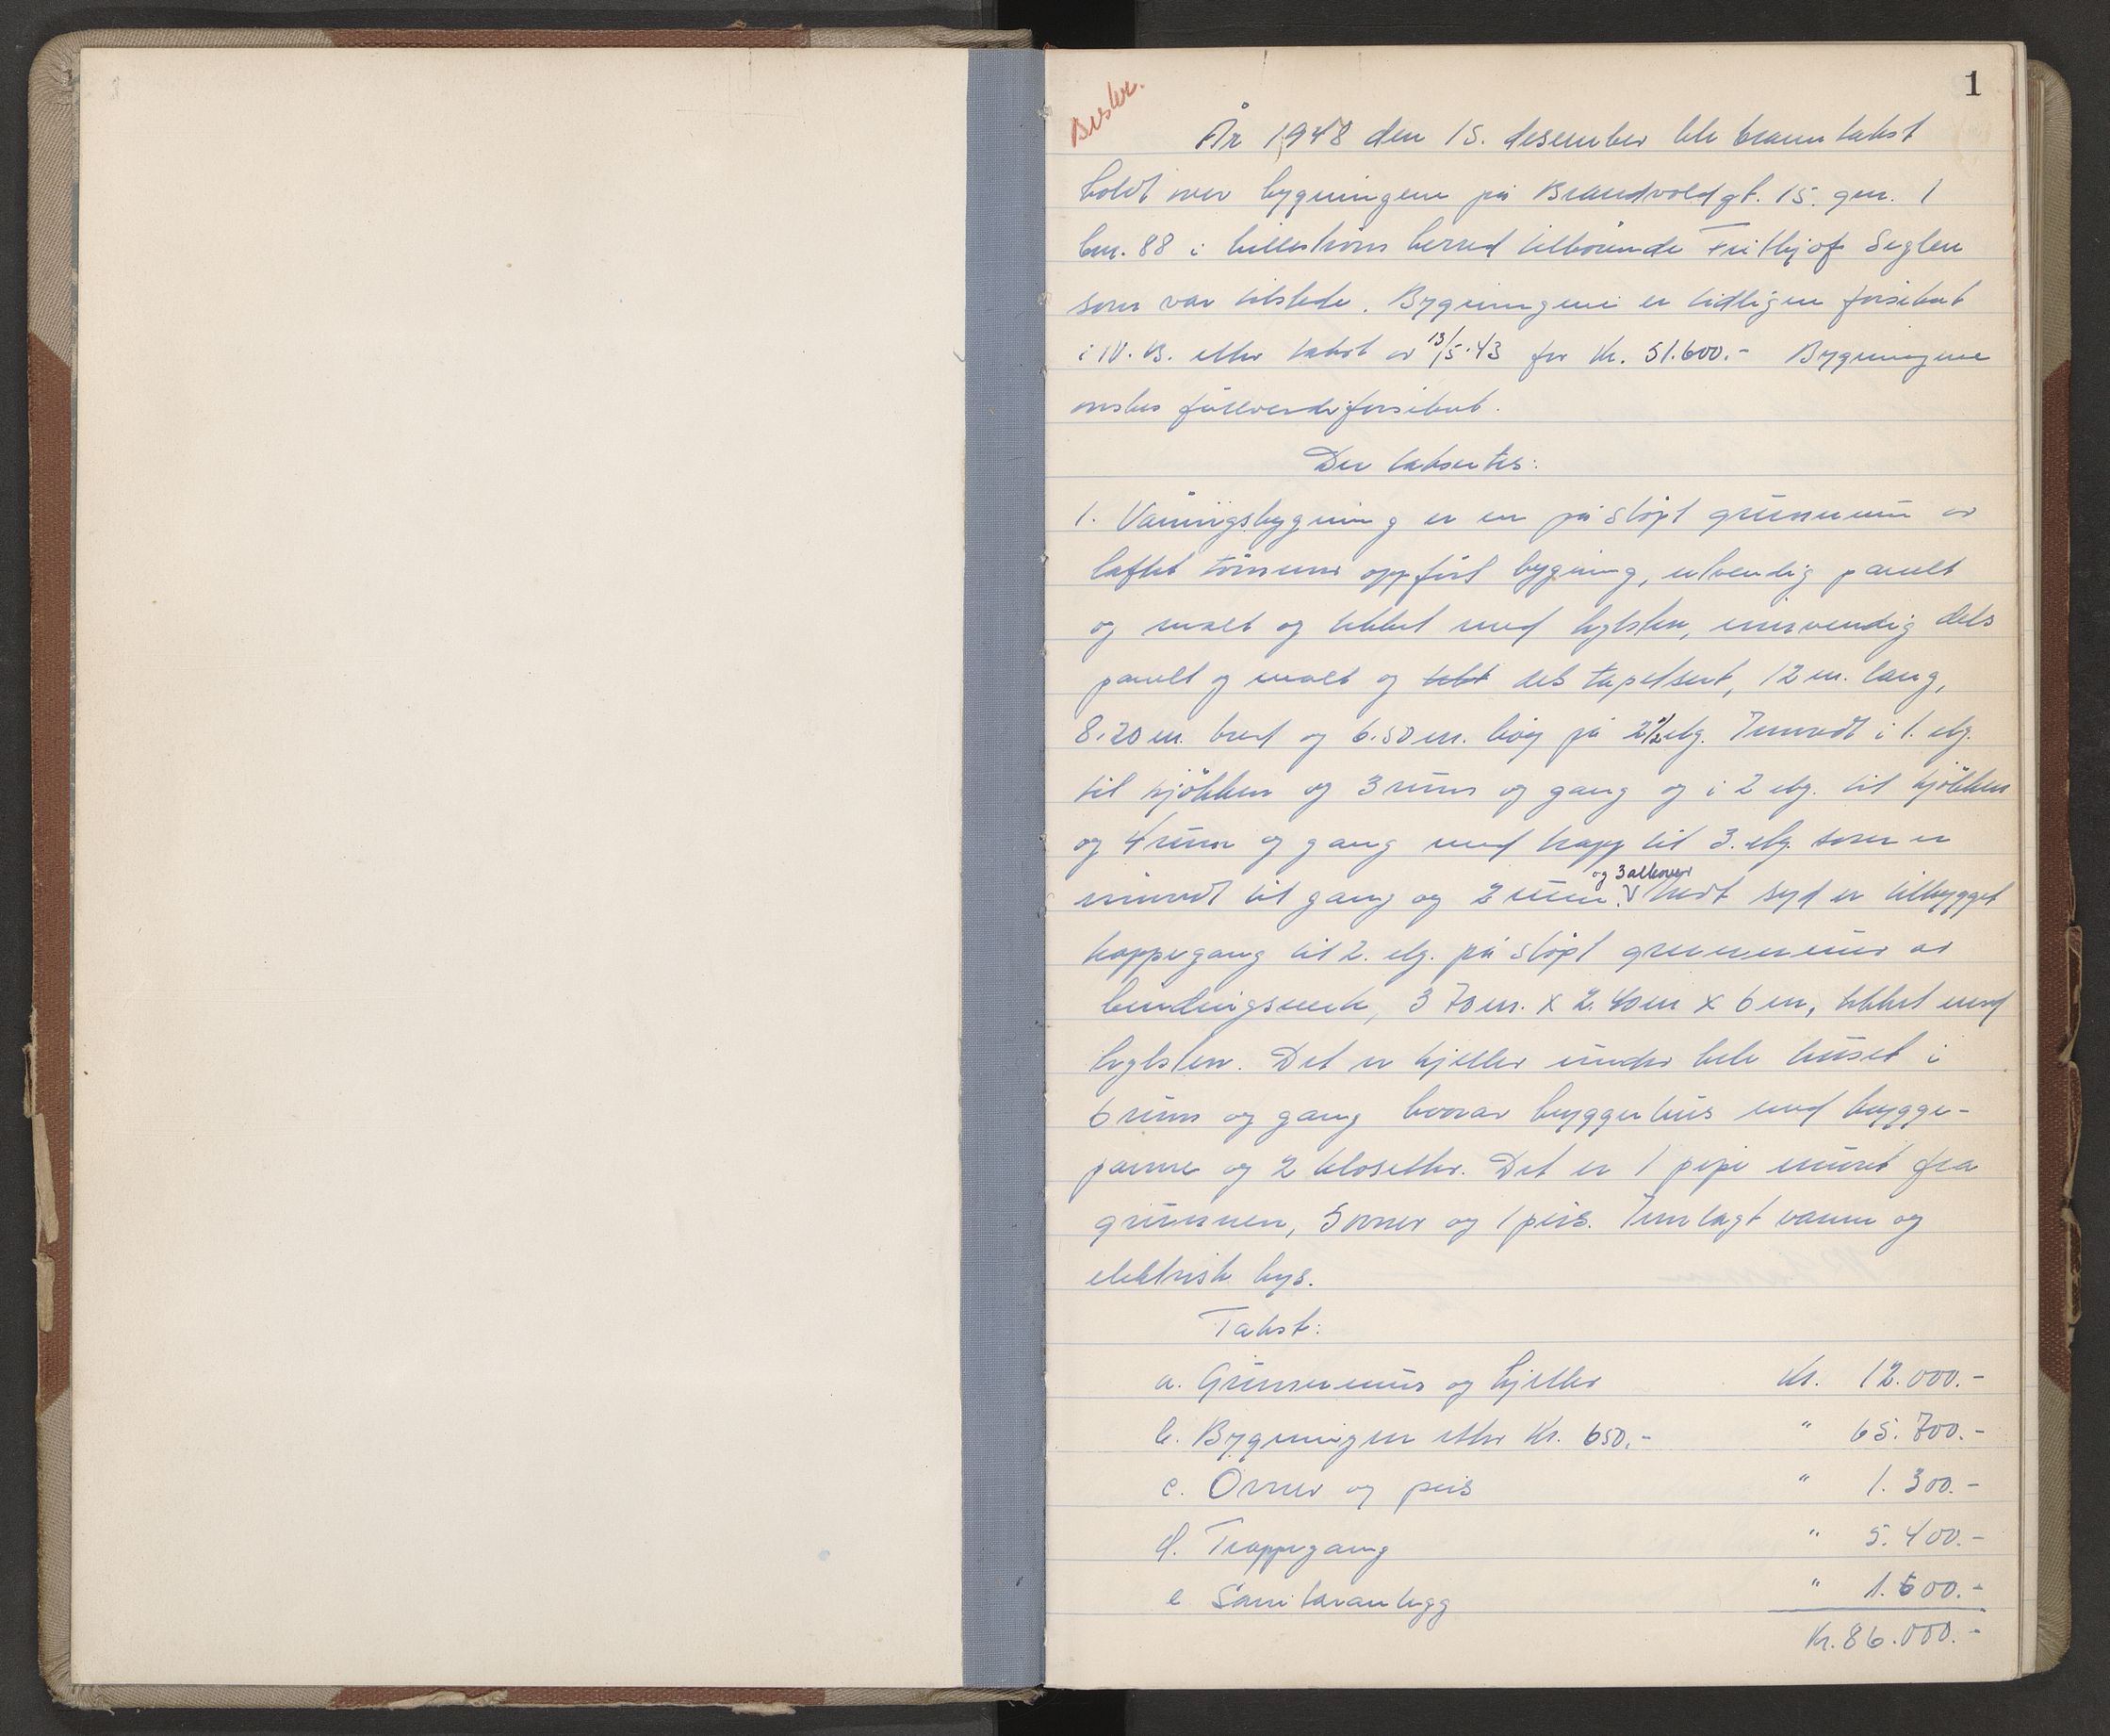 1
Beskr.
År 1948 den 15. desember ble branntakst
holdt over bygningene på Brandvoldgt. 15. gnr. 1
bnr. 88 i Lillestrøm herred tilhørende Frithjof Seglen
som var tilstede. Bygningene er tidligere forsikret
i N.B. etter takst av 13/5.43 for Kr. 51.600.- Bygningene
ønskes fullverdiforsikret.
Der takseres:
1. Våningsbygning er en på støpt grunnmur av
laftet tømmer oppført bygning, utvendig panelt
og malt og tekket med teglsten, innvendig dels
panelt og malt og dels tapetsert, 12 m. lang,
8.20 m. bred og 6.50 m. høy på 2 1/2 etg. Innredt i 1. etg.
til kjøkken og 3 rum og gang og i 2 etg. til kjøkken
og 4 rum og gang med trapp til 3. etg. som er
innredt til gang og 2 rum og 3 alkover. Mot syd er tilbygget
trappegang til 2. etg. på støpt grunnmur av
bindingsverk, 3 70 m. x 2.40 m x 6 m, tekket med
teglsten. Det er kjeller under hele huset i
6 rum og gang hvorav bryggerhus med brygge-
panne og 2 klosetter. Det er 1 pipe muret fra
grunnen, 5 ovner og 1 peis. Innlagt vann og
elektrisk lys.
Takst:
a. Grunnmur og kjeller Kr. 12.000.-
b. Bygningen etter Kr. 650.- " 65.700.-
c. Ovner og peis " 1.300.-
d. Trappegang " 5.400.-
e Sanitæranlegg " 1.600.-
Kr. 86.000.-